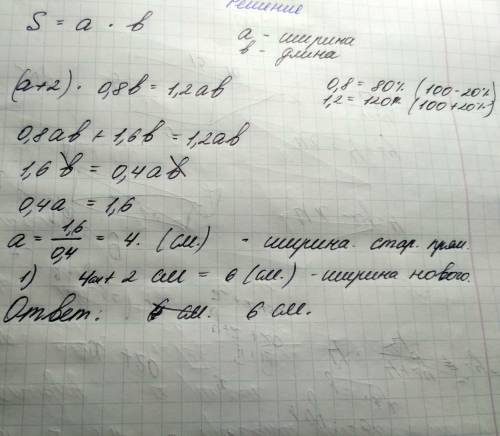 Решение
S = a · b
a - ширина
b - длина
(a+2) · 0,8b = 1,2ab
0,8 = 80% (100-20%)
1,2 = 120% (100+20%)
0,8ab + 1,6b = 1,2ab
1,6b = 0,4ab
0,4a = 1,6
a = 1,6/0,4 = 4. (см.) - ширина. стар. прям.
1) 4см + 2 см = 6 (см.) - ширина нового.
Ответ: 6 см. 6 см.